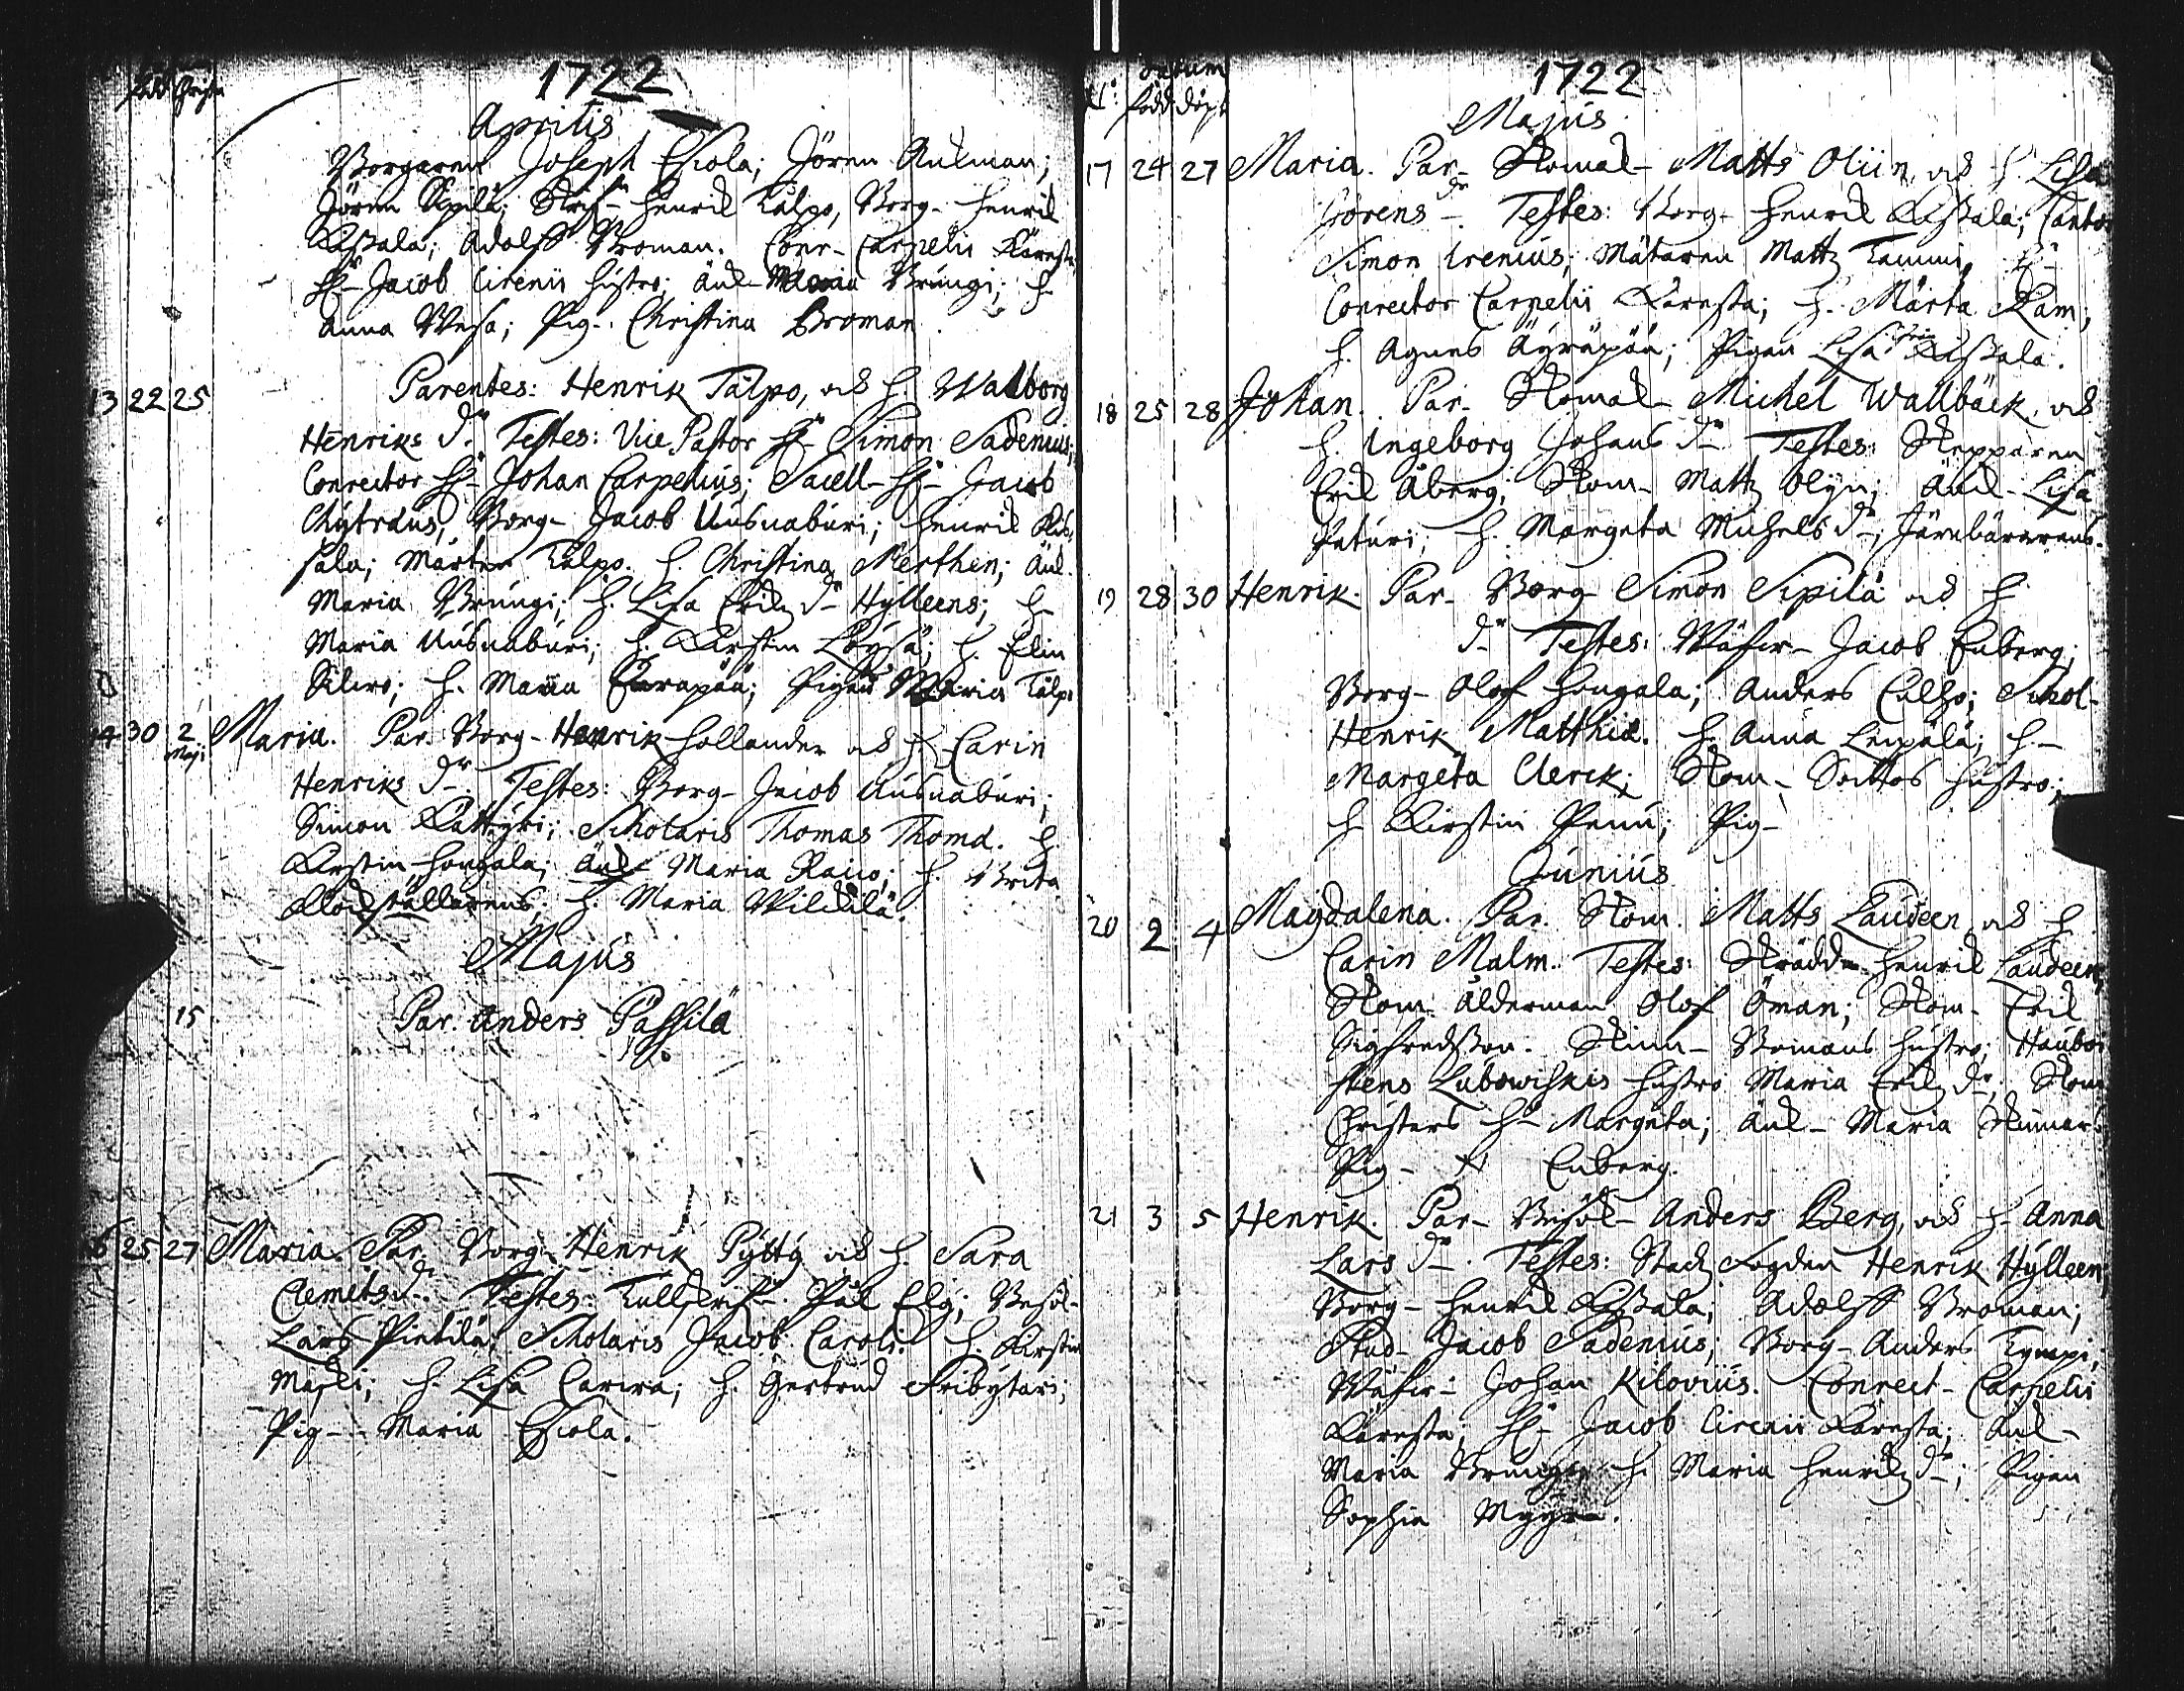 födt Christn
1722
Aprilis
Borgaren Joseph Eskola; Jören Aulman;
Jören Sipilä; Henrik Talpo, Borg- Henrik
Adolff Broman. Conr- Carpelii Käresta
Hr- Jacob Cirenii hustro; Änk- Maria Brungi; H.
Anna Wesa; Pig- Christina Broman.
13 22 25 Parentes: Henrik Talpo, och H. Walborg
Henriks dr. Testes: Vice Pastor Hr- Simon Sadenius;
Conrector Hr- Johan Carpelius; Sacell- Hr- Jacob
Chytræus; Borg- Jacob Uusnaburi; Henrik Kis-
sala; Mårten Talpo. H. Christina Merthen; Änk.
Maria Brungi; H. Lisa Erik dr Hylleens; H-
Maria Uusnaburi; H. Kirstin H. Elin
H. Maria Pigan Maria Talpo
14 30 2 Maji Maria. Par. Borg- Henrik Hollander och H. Carin
Henriks dr. Testes: Borg- Jacob Uusnaburi;
Simon Scholaris Thomas Thomæ. H.
Kirstin Hongala; Änk- Maria Raico; H. Brita
Klockställarens; H. Maria Wildilä.
Majus
15 Par. Anders Passila
16 25 27 Maria. Par. Borg- Henrik Pytty och H. Sara
Clemets dr. Testes: Pål Elg;
Lars Pietilä; Scholaris Jacob Caroli. H. Kirstin
H. Lisa H. Gertrud
Pig- Maria Eskola.
N: Datum
född döpt
1722
Majus
17 24 27 Maria. Par- Skomak- Matts Oliin, och H. Lisa
Jörens dr- Testes: Borg- Henrik Kissala; Cantor
Simon Irenius; Mätaren Matts Tammi,
Conrector Carpelii Käresta; H. Märta Ram;
H. Agnes Äyräpää; Pigan Lisa Kissala.
18 25 28 Johan. Par- Skomak- Michel Wallbäck, och
H. Ingeborg Johans dr- Testes: Skepparen
Erik Åberg; Skom- Matts Olyn; Änk- Lisa
Paturi; H. Margeta Michels dr-; Järnbärarens.
19 28 30 Henrik. Par- Borg- Simon Sipilä och H.
dr- Testes: Wäfw- Jacob Enberg;
Borg- Olof Hongala; Anders Schol-
Henrik Matthiæ. H. Anna Leipälä; H-
Margeta Clerck; Skom- hustro;
H. Kirstin Penu; Pig-
Junius
20 2 4 Magdalena. Par. Skom. Matts Laudeen och H.
Carin Malm. Testes: Skrädd- Henrik Laudeen;
Skom- Ålderman Olof Öman; Skom- Erik
Sigfredsson. Skinn- Bomans hustro; Hauboi-
stens Lubowiskis hustro Maria Erik dr; Skom-
Christers H- Margeta; Änk- Maria Skinnars
Pig- N Enberg.
21 3 5 Henrik. Par- Anders Berg, och H- Anna
Lars dr-. Testes: Stads Fogden Henrik Hylleen;
Borg- Henrik Kissala; Adolff Broman;
Stud- Jacob Sadenius; Borg- Anders Tympi;
Wäfw- Johan Kilovius. Conrect- Carpelii
Käresta; Hr- Jacob Cirenii Käresta; Änk-
Maria Brungi; H. Maria Henriks dr-; Pigan
Sophia